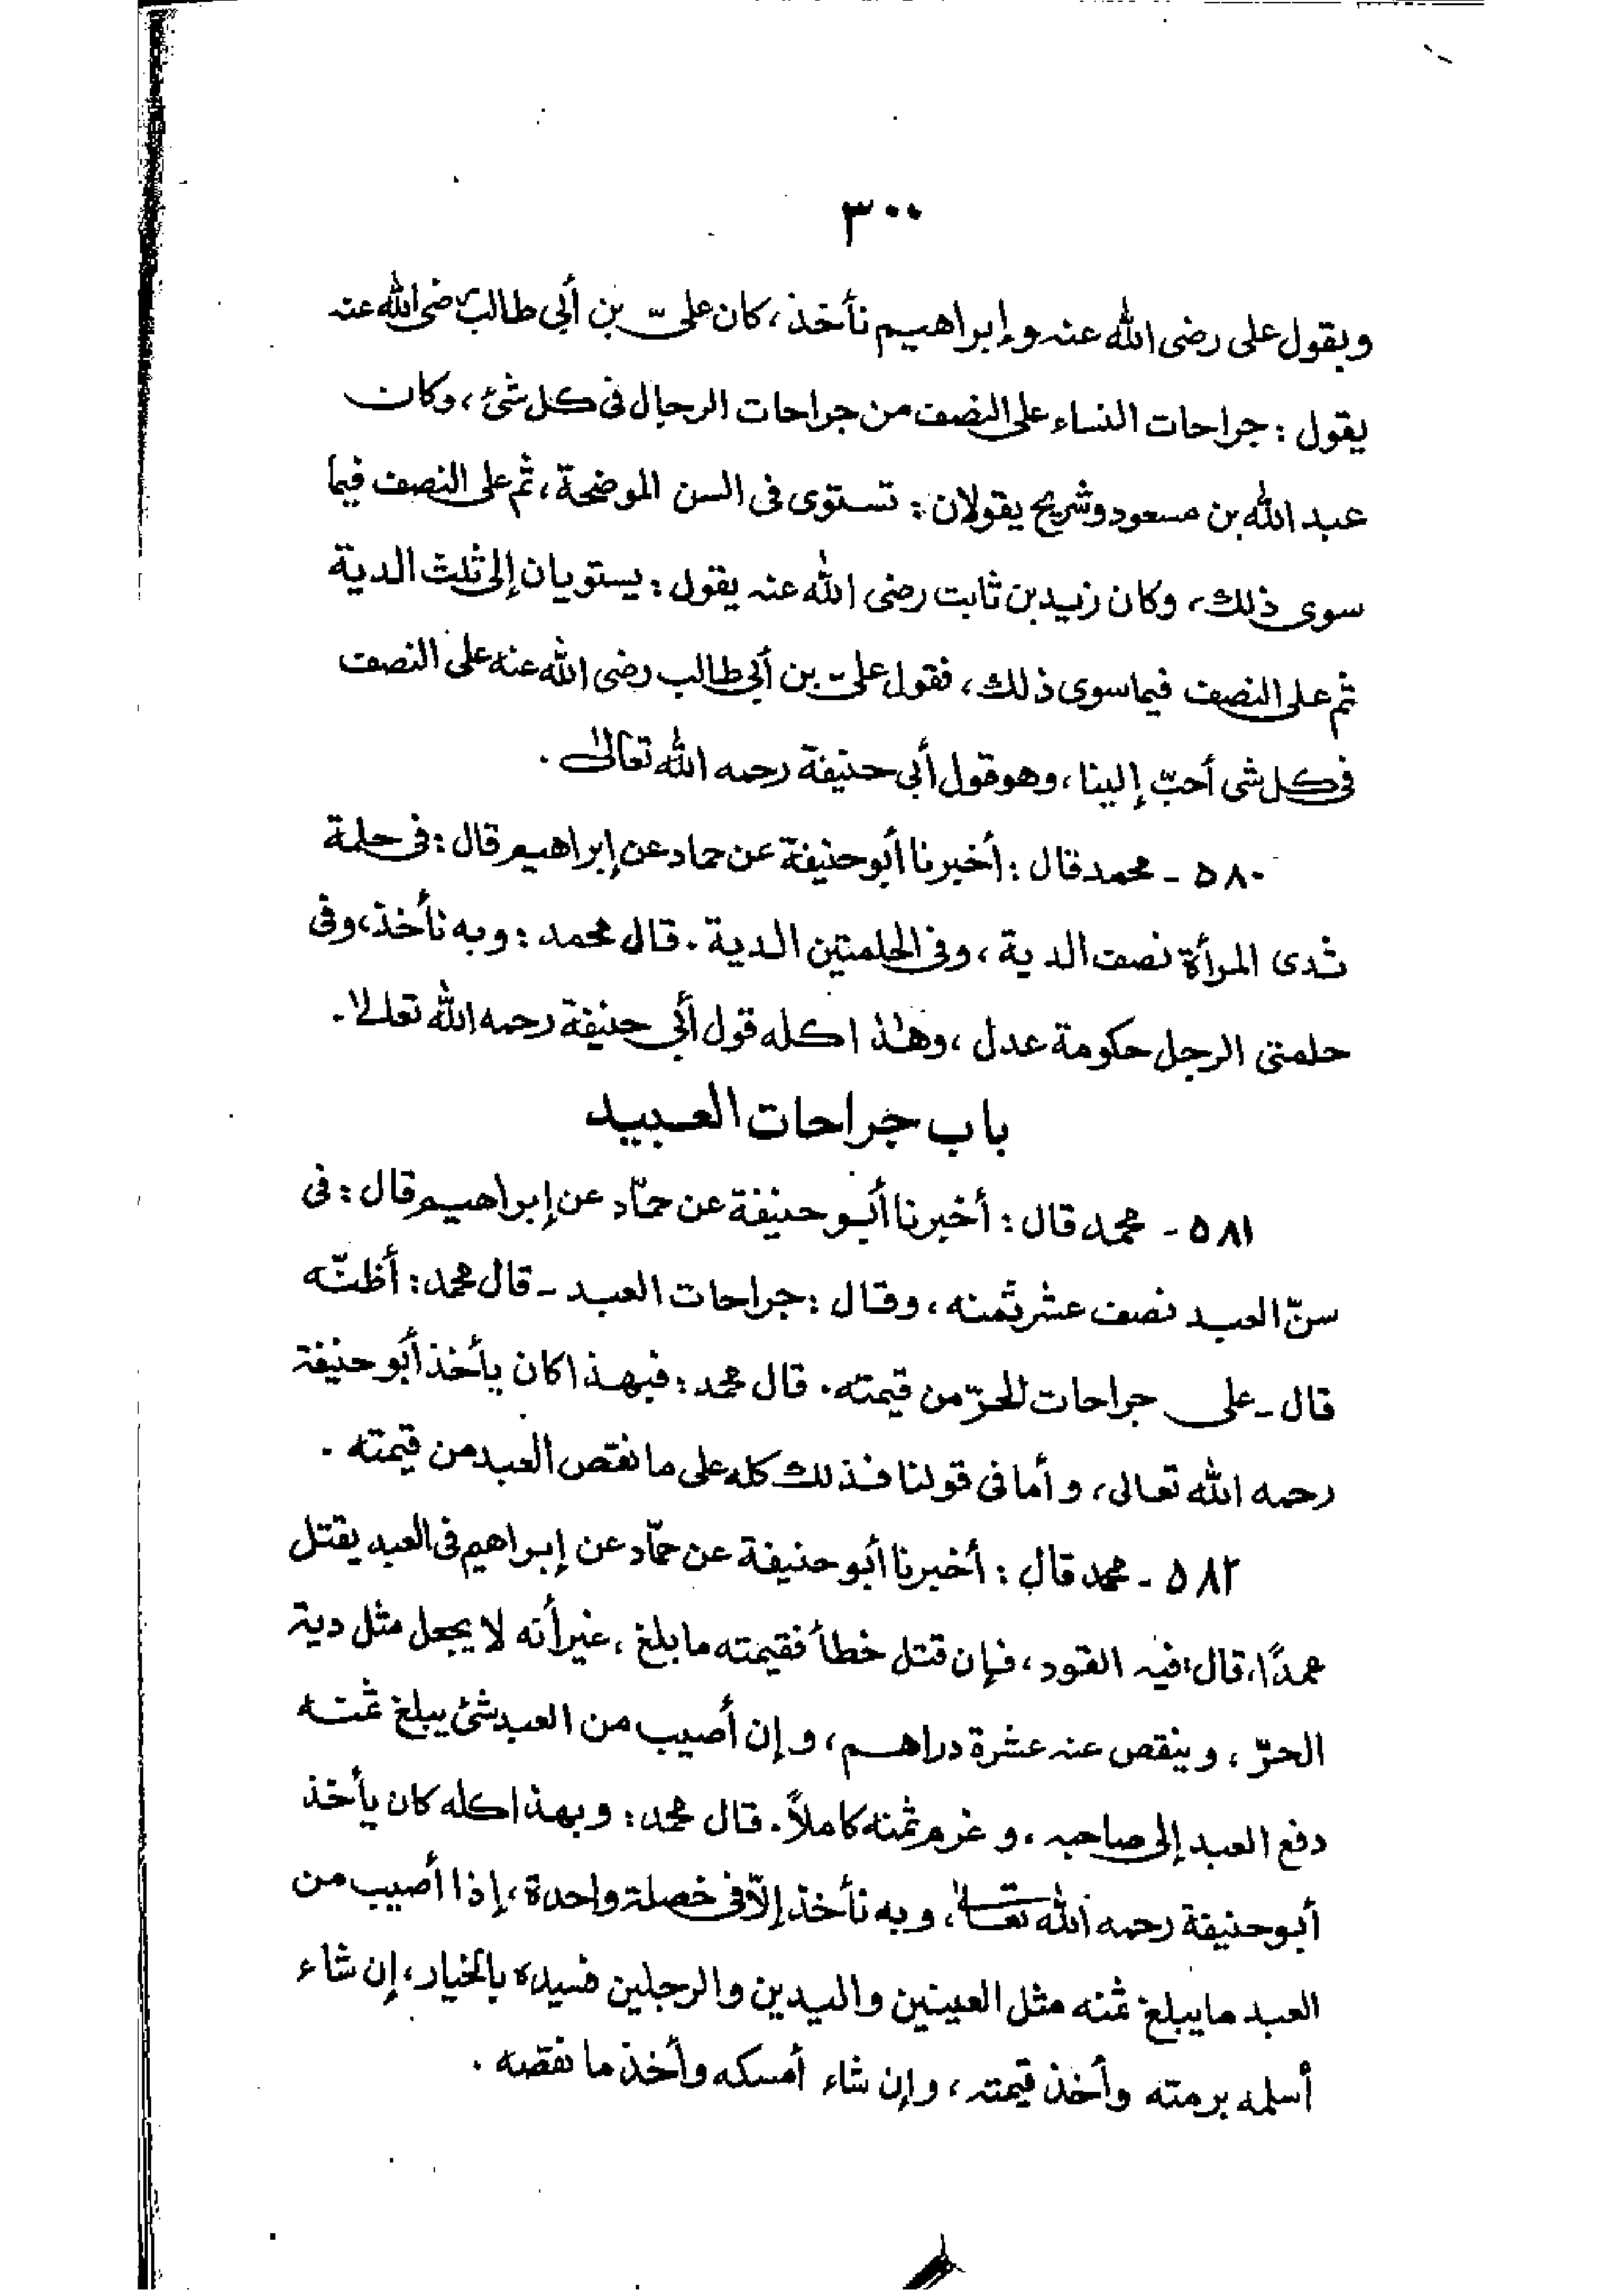 ٣٠٠
وبقول على رضى الله عنه وإبراهيم نأخذ، كان علىّ بن أبى طالب رضى الله عنه
يقول : جراحات النساء على النصف من جراحات الرجال فى كل شئ، وكان
عبد الله بن مسعود وشريح يقولان : تستوى فى السن الموضحة، ثم على النصف فيما
سوى ذلك، وكان زيد بن ثابت رضى الله عنه يقول : يستويان إلى ثلث الدية
ثم على النصف فيما سوى ذلك، فقول علىّ بن أبى طالب رضى الله عنه على النصف
فى كل شى أحبّ إلينا، وهو قول أبى حنيفة رحمه الله تعالى .
٥٨٠ - محمد قال : أخبرنا أبو حنيفة عن حماد عن إبراهيم قال : فى حلمة
ثدى المرأة نصف الدية، وفى الحلمتين الدية . قال محمد : وبه نأخذ، وفى
حلمتى الرجل حكومة عدل، وهذا كله قول أبى حنيفة رحمه الله تعالى .
باب جراحات العبيد
٥٨١ - محمد قال : أخبرنا أبو حنيفة عن حمّاد عن إبراهيم قال : فى
سنّ العبد نصف عشر ثمنه، وقال : جراحات العبد - قال محمد : أظنّه
قال - على جراحات للحرّ من قيمته . قال محمد : فبهذا كان يأخذ أبو حنيفة
رحمه الله تعالى، وأما فى قولنا فذلك كله على ما نقص العبد من قيمته .
٥٨٢ - محمد قال : أخبرنا أبو حنيفة عن حمّاد عن إبراهيم فى العبد يقتل
عمدًا، قال : فيه القود، فإن قتل خطأ فقيمته ما بلغ، غير أنه لا يجعل مثل دية
الحرّ، وينقص عنه عشرة دراهم، وإن أصيب من العبد شئ يبلغ ثمنه
دفع العبد إلى صاحبه، وغرم ثمنه كاملاً . قال محمد : وبهذا كله كان يأخذ
أبو حنيفة رحمه الله تعالى، وبه نأخذ إلاّ فى خصلة واحدة، إذا أصيب من
العبد ما يبلغ ثمنه مثل العينين واليدين والرجلين فسيده بالخيار، إن شاء
أسلمه برمته وأخذ قيمته، وإن شاء أمسكه وأخذ ما نقصه .